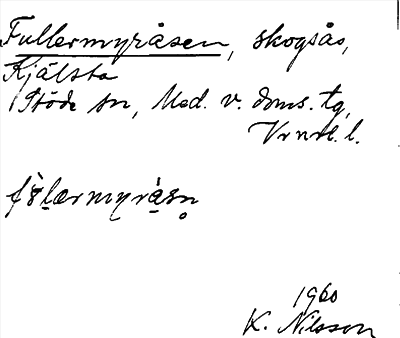 Fullermyråsen, skogsås,
Kjälsta
Stöde sn, Med. v. doms. tg,
Vrnrl. l.
1960
K. Nilsson